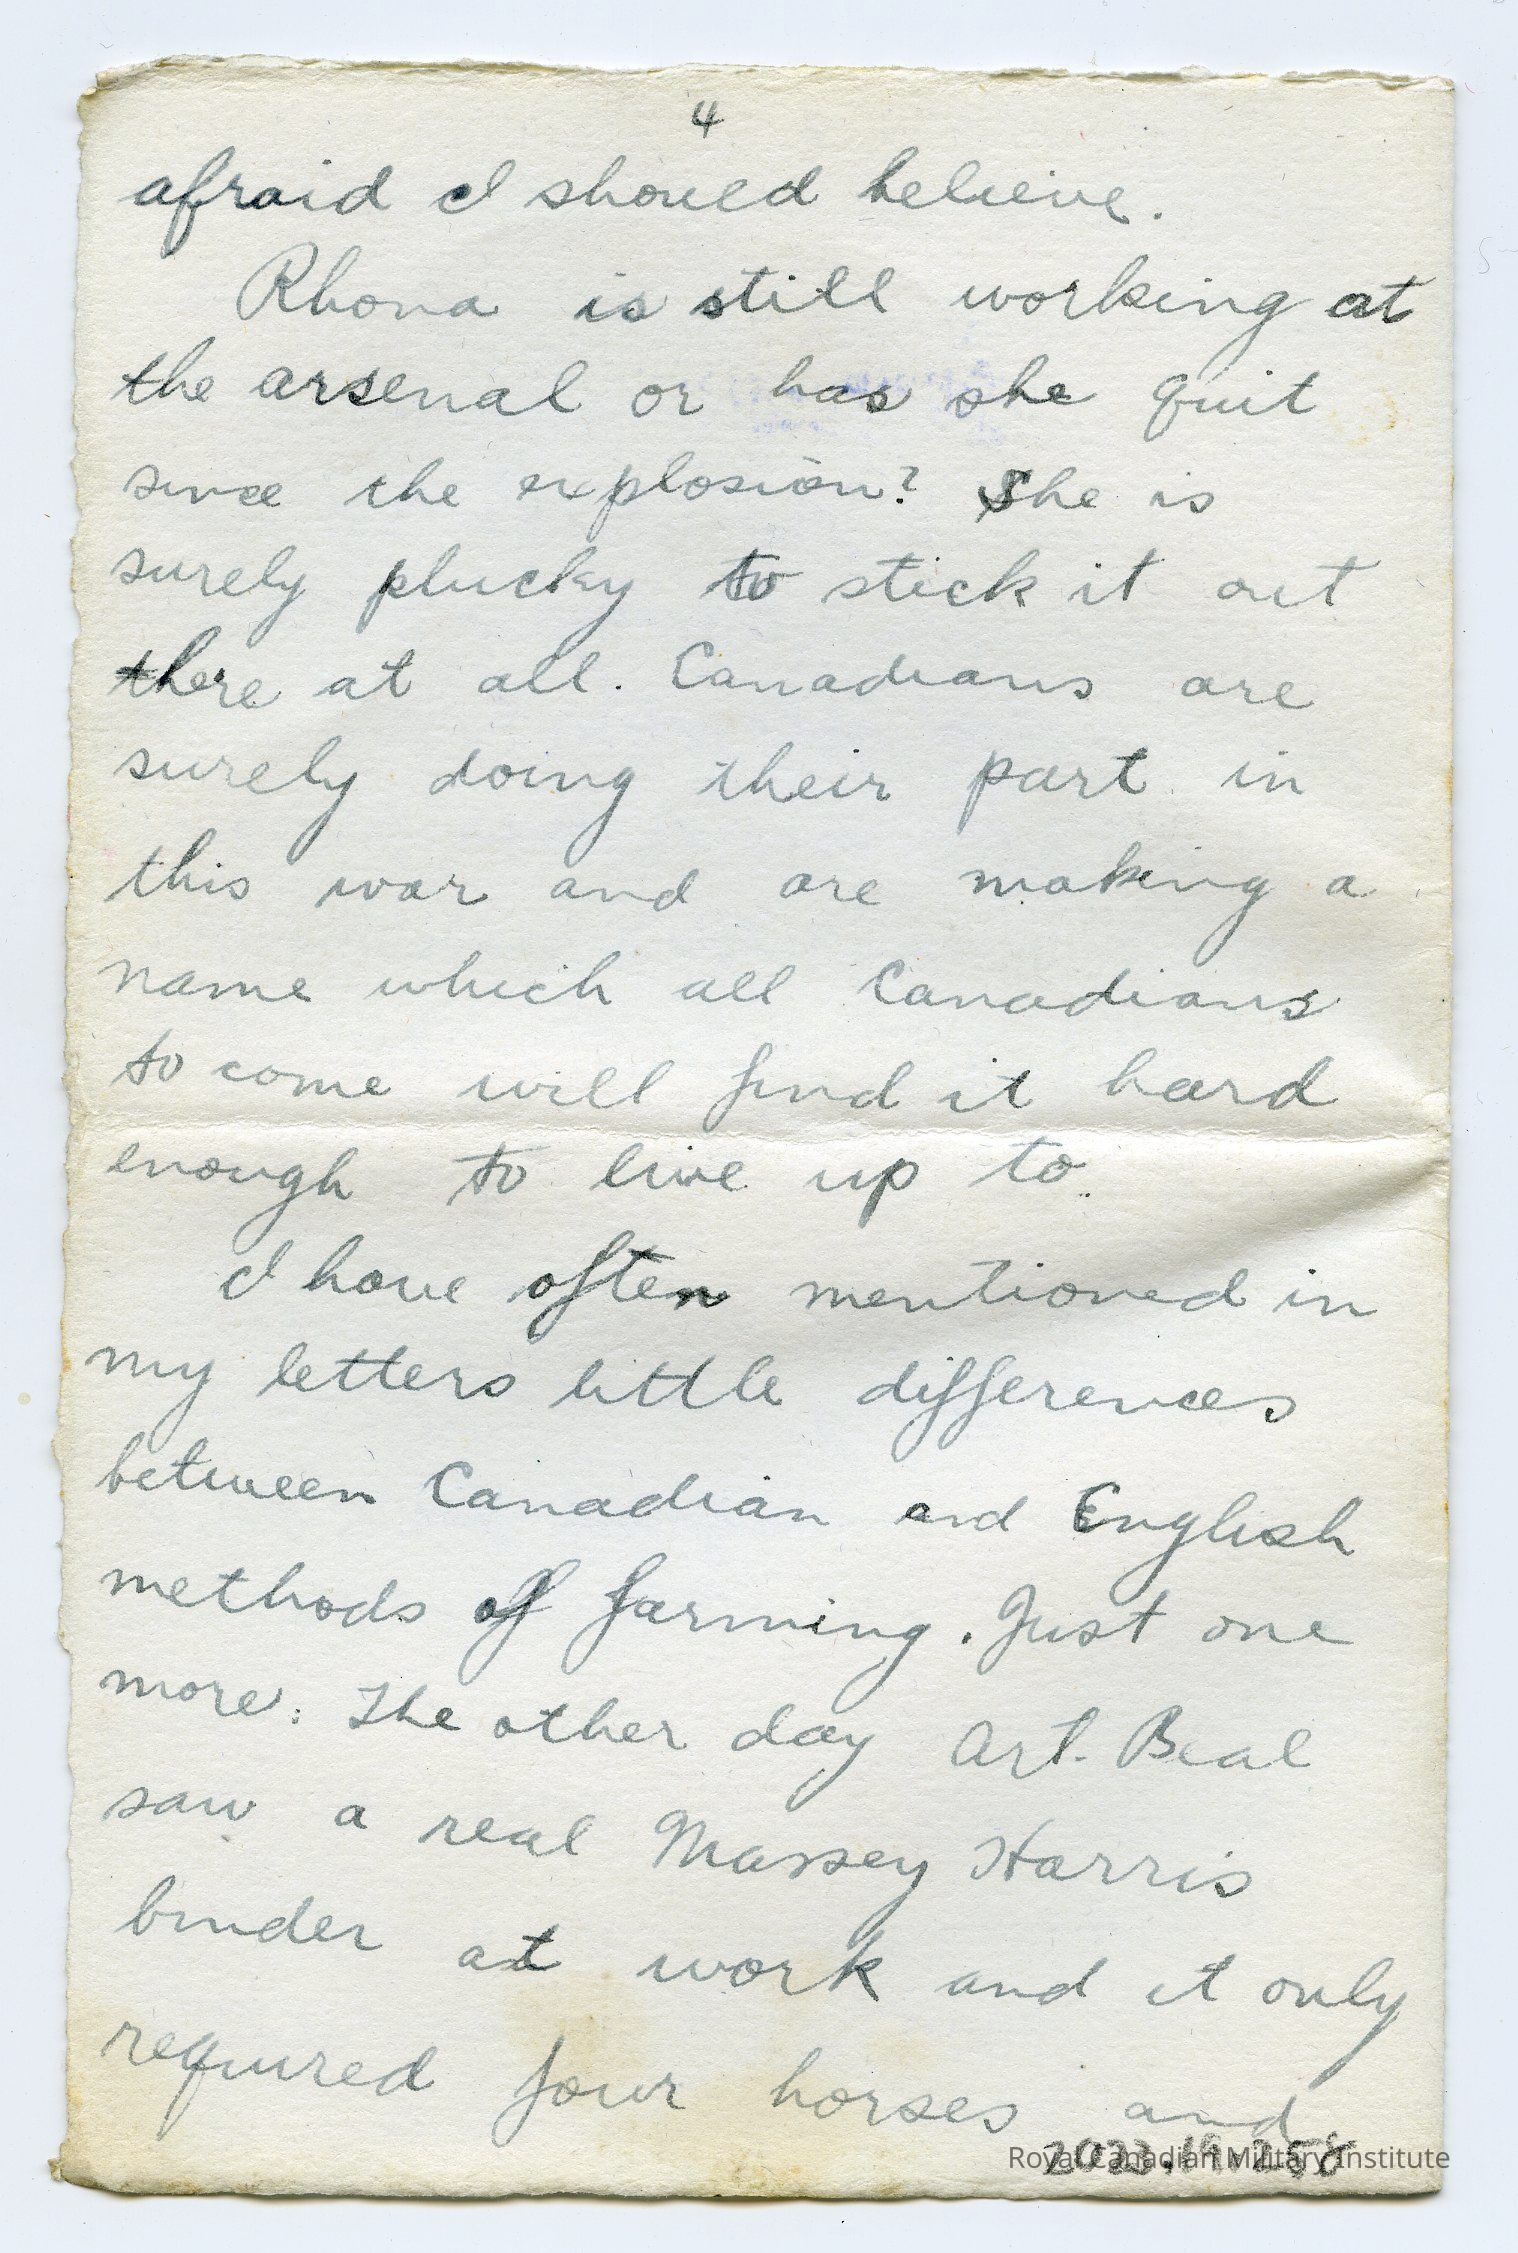 4
afraid I should believe.
Rhona is still working at
the arsenal or has she quit
since the explosion? She is
surely plucky to stick it out
there at all. Canadians are
surely doing their part in
this war and are making a
name which all Canadians
to come will find it hard
enough to live up to.
I have often mentioned in
my letters little differences
between Canadian and English
methods of farming. Just one
more: The other day Art. Beal
saw a real Massey Harris
binder at work and it only
required four horses and
2023.19.258
Royal Canadian Military Institute